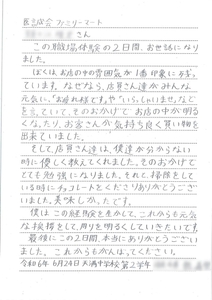 民言店会 ファミリーマート
さん
この職場体験の2日間、お世話になり
ました。
ぼくは、お店の中の雰囲気が1番印象に残っ
ています。なぜなら、店員さん達がみんな
元気に、「お疲れ様です」や「いらっしゃいませ」などを
言っていて、そのおかげでお店の中が明る
くなり、お客さんが気持ち良く買い物を
出来ていました。
そして、店員さん達は、僕達が分からない
時に優しく教えてくれました。そのおかげで
とても勉強になりました。それと、掃除をして
いる時にチョコレートをくださりありがとうござい
ました。美味しかったです。
僕はこの経験を生かして、これからも元気
な挨拶をして、周りを明るくしていきたいです。
最後にこの2日間、本当にありがとうござい
ました。これからもがんばってください。
令和6年6月24日 中学校 第2学年